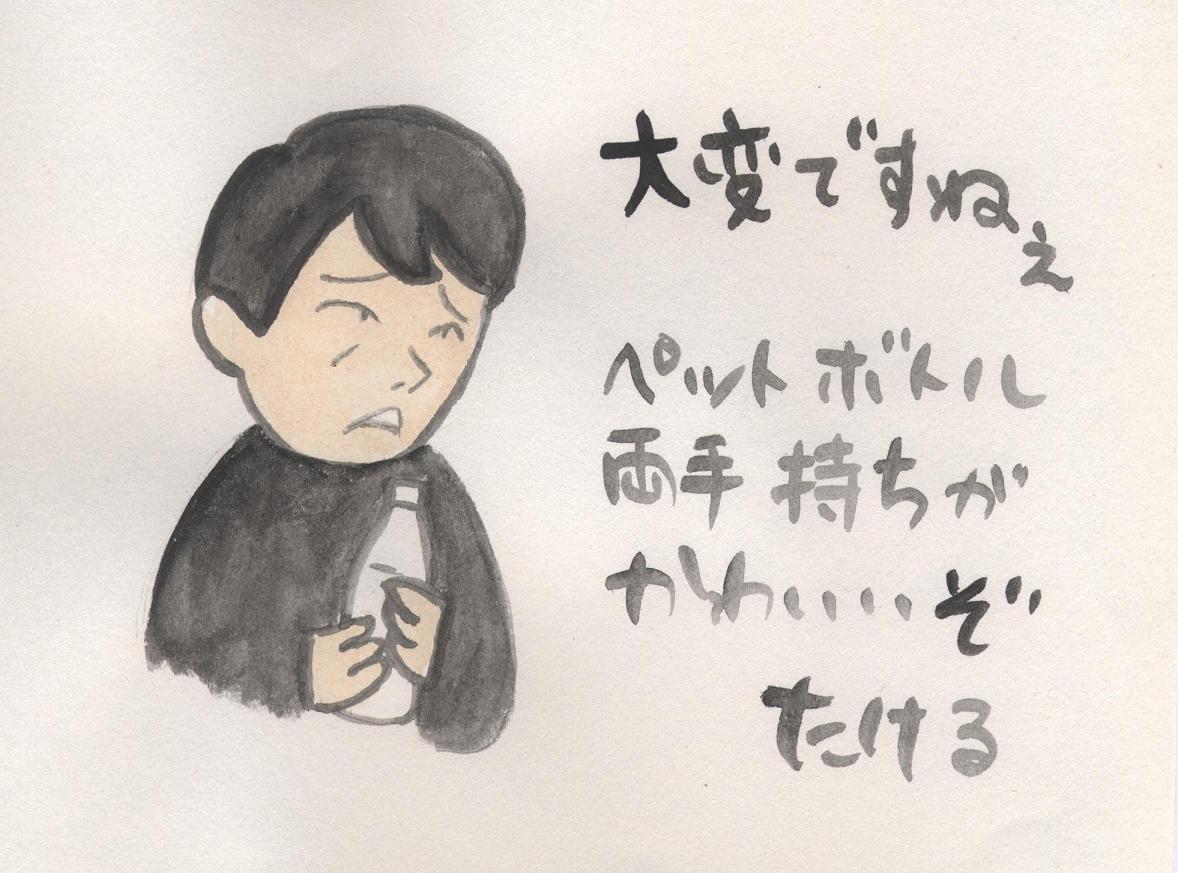 大変ですねぇ
ペットボトル
両手持ちが
かわいいぞ
たける